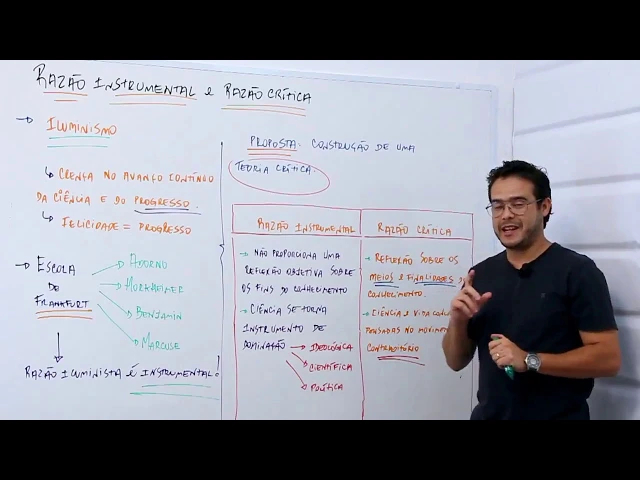 RAZÃO INSTRUMENTAL e RAZÃO CRÍTICA
→ ILUMINISMO
↳ CRENÇA NO AVANÇO CONTÍNUO
DA CIÊNCIA E DO PROGRESSO.
↳ FELICIDADE = PROGRESSO
→ ESCOLA
DE
FRANKFURT
→ ADORNO
→ HORKHEIMER
→ BENJAMIN
→ MARCUSE
RAZÃO ILUMINISTA É INSTRUMENTAL!
PROPOSTA: CONSTRUÇÃO DE UMA
TEORIA CRÍTICA.
RAZÃO INSTRUMENTAL
→ NÃO PROPORCIONA UMA
REFLEXÃO OBJETIVA SOBRE
OS FINS DO CONHECIMENTO
→ CIÊNCIA SE TORNA
INSTRUMENTO DE
DOMINAÇÃO → IDEOLÓGICA
→ CIENTÍFICA
→ POLÍTICA
RAZÃO CRÍTICA
→ REFLEXÃO SOBRE OS
MEIOS e FINALIDADES
CONHECIMENTO.
→ CIÊNCIA E VIDA
PENSADAS NO
CONTRADITÓRIO